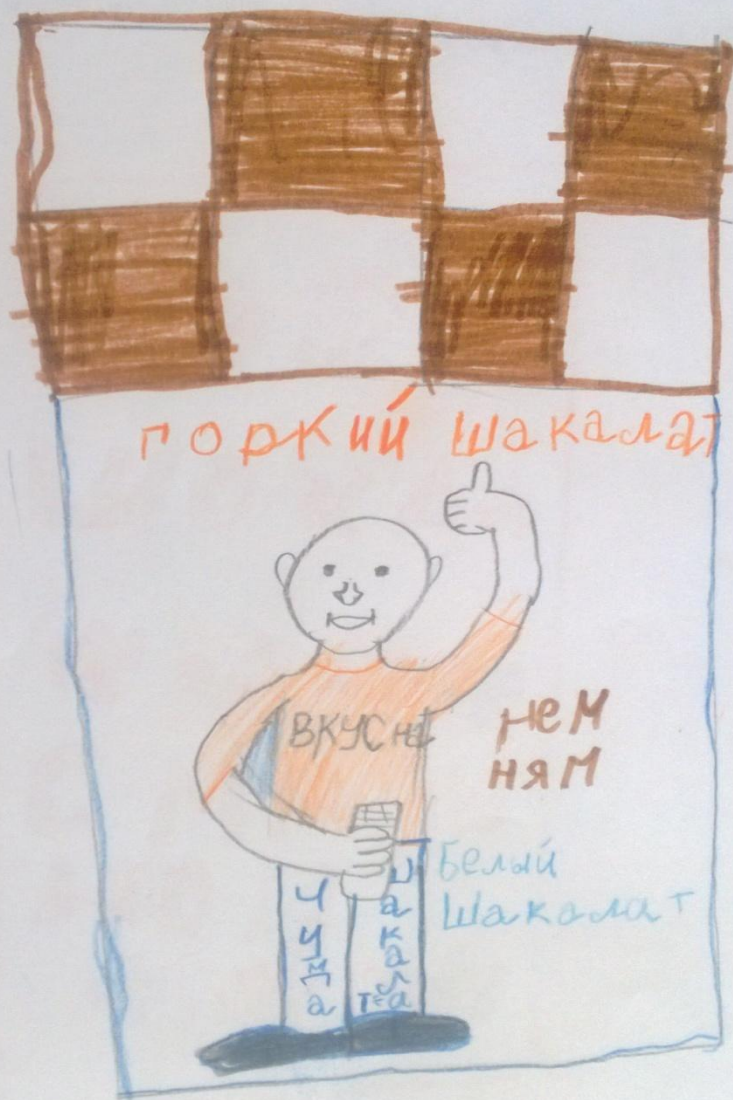 горкий шакалат
ВКУСНА
нем
ням
Белый
Шакалат
Чуда
шакала
те